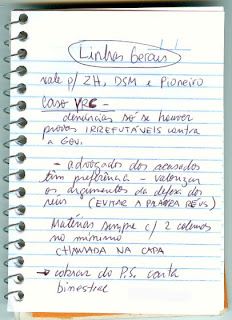 Linhas Gerais
vale p/ ZH, DSM e Pioneiro
Caso VRG -
denúncias só se houver
provas IRREFUTÁVEIS contra
a Gov.
- advogados dos acusados
têm preferência - valorizar
os argumentos da defesa dos
réus (EVITAR A PALAVRA RÉUS)
Matérias sempre c/ 2 colunas
no mínimo
CHAMADA NA CAPA
→ cobrar do P.S. carta
bimestral